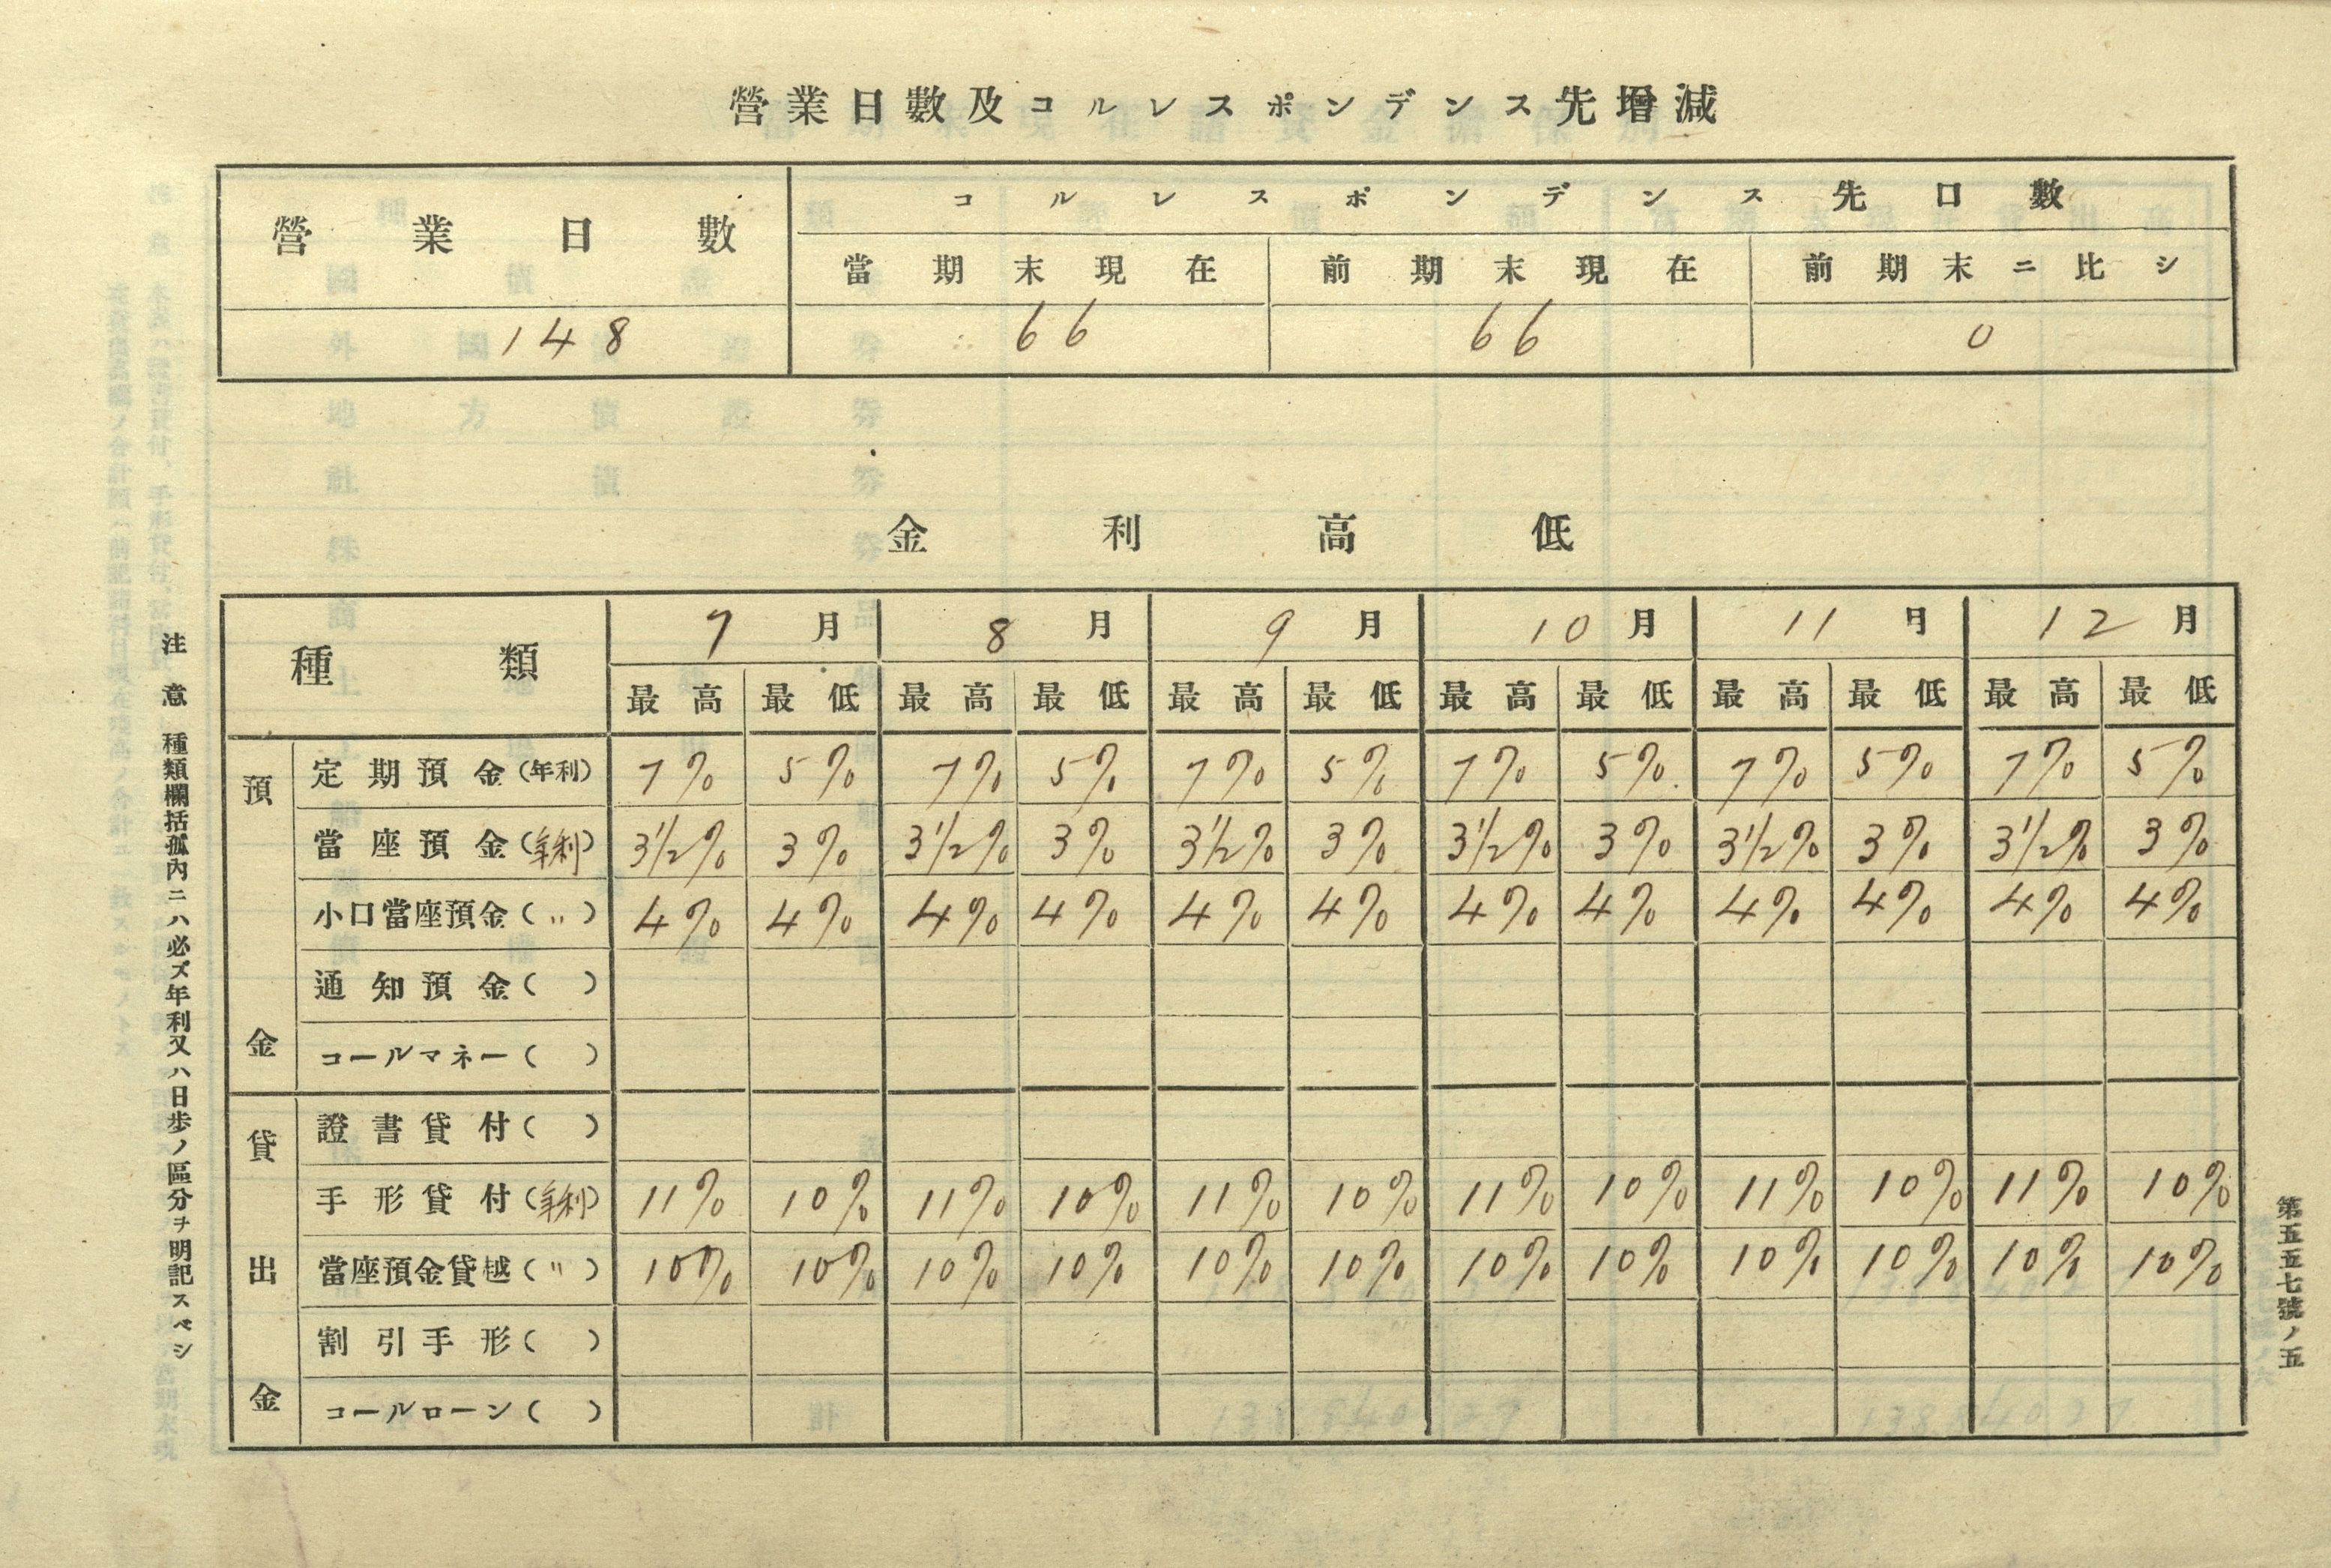 營業日數及コルレスポンデンス先增減
營業日數 コルレスポンデンス先口數
當期末現在 前期末現在 前期末ニ比シ
148 66 66 0
金利高低
種類 7月 8月 9月 10月 11月 12月
最高 最低 最高 最低 最高 最低 最高 最低 最高 最低 最高 最低
預金
定期預金(年利) 7% 5% 7% 5% 7% 5% 7% 5% 7% 5% 7% 5%
當座預金(年利) 3½% 3% 3½% 3% 3½% 3% 3½% 3% 3½% 3% 3½% 3%
小口當座預金(〃) 4% 4% 4% 4% 4% 4% 4% 4% 4% 4% 4% 4%
通知預金( )
コールマネー( )
貸出金
證書貸付( )
手形貸付(年利) 11% 10% 11% 10% 11% 10% 11% 10% 11% 10% 11% 10%
當座預金貸越(〃) 10% 10% 10% 10% 10% 10% 10% 10% 10% 10% 10% 10%
割引手形( )
コールローン( )
注意 種類欄括孤內ニハ必ズ年利又ハ日歩ノ區分ヲ明記スベシ
第五五七號ノ五